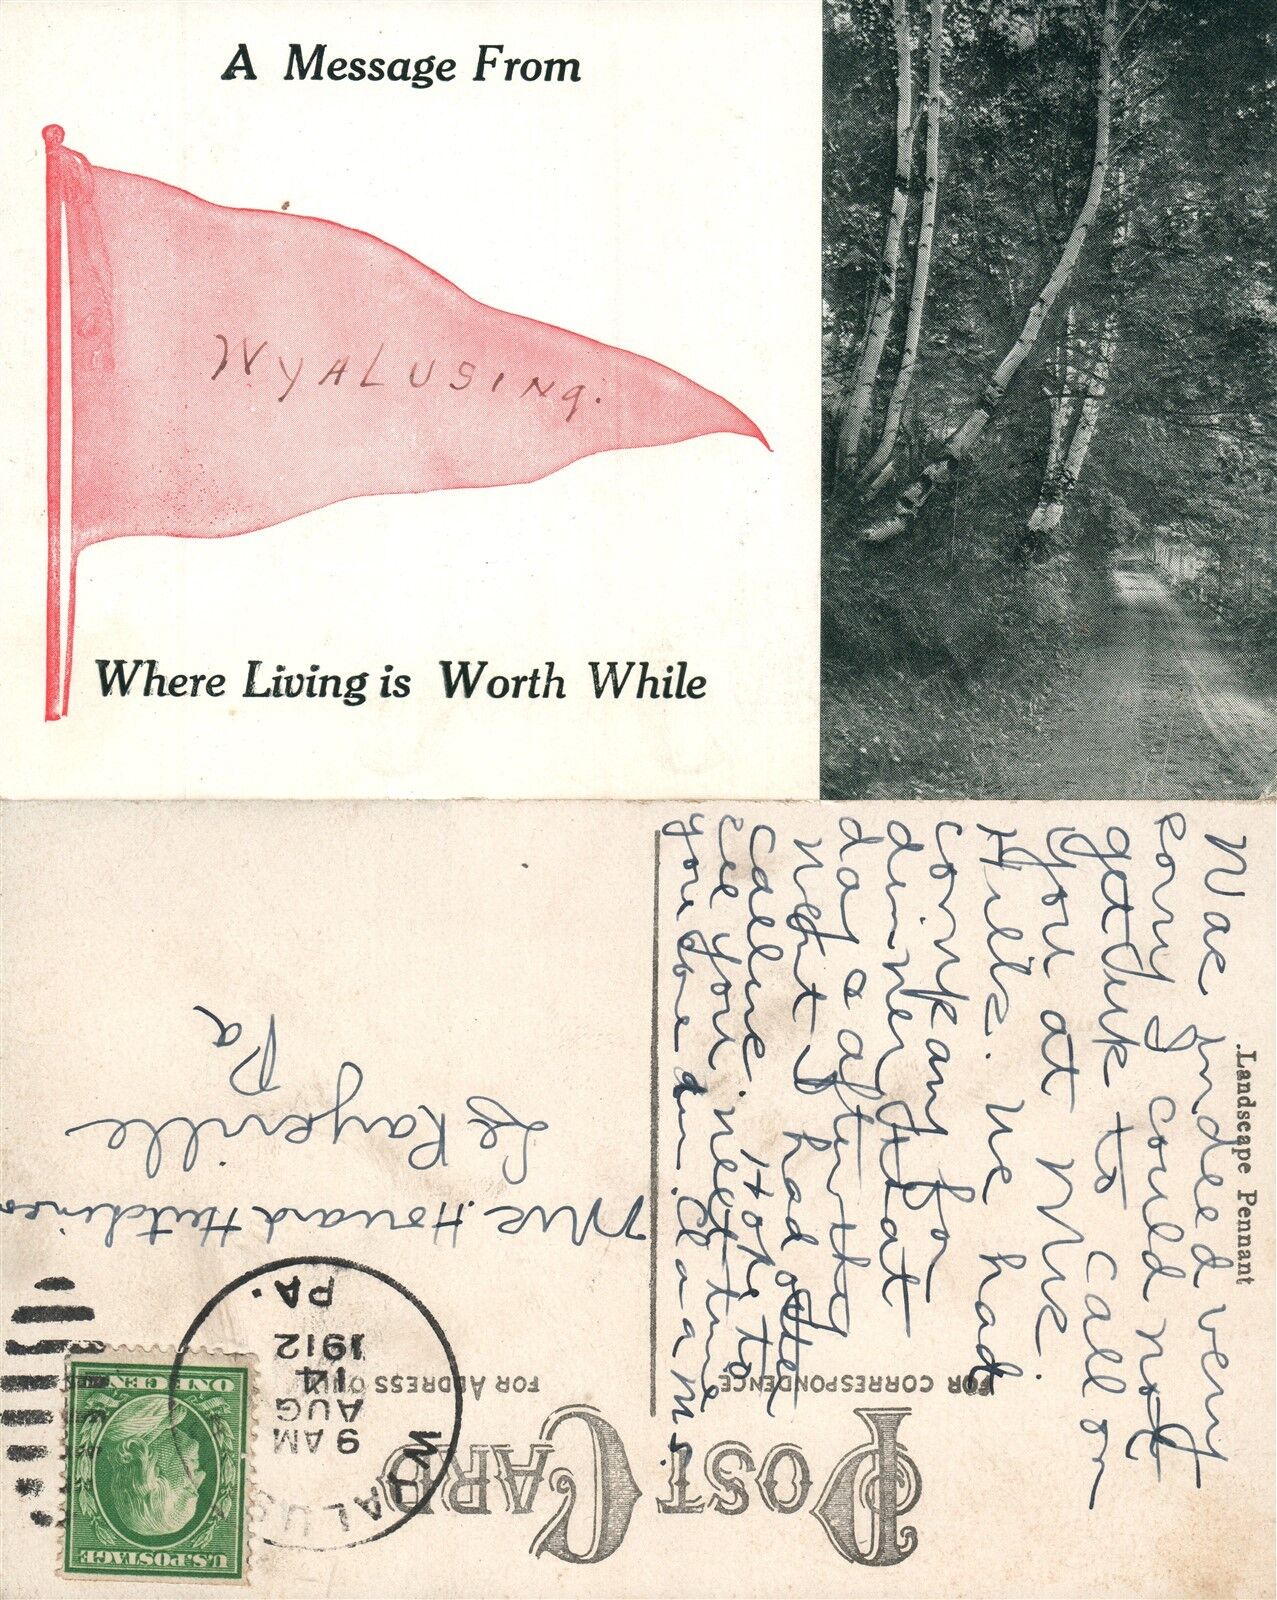 A Message From
WYALUSING.
Where Living is Worth While
POST CARD
FOR CORRESPONDENCE
FOR ADDRESS ONLY
Landscape Pennant.
Was indeed very
sorry I could not
get duk to call on
you at Mrs.
Hill's. We had
company for
dinner that
day & after they
went I had other
callers. Hope to
see you next time
you are down.
WYALUSING
9 AM
AUG
14
1912
PA.
U.S. POSTAGE
ONE CENT
Mrs. Howard
Le Raysville
Pa